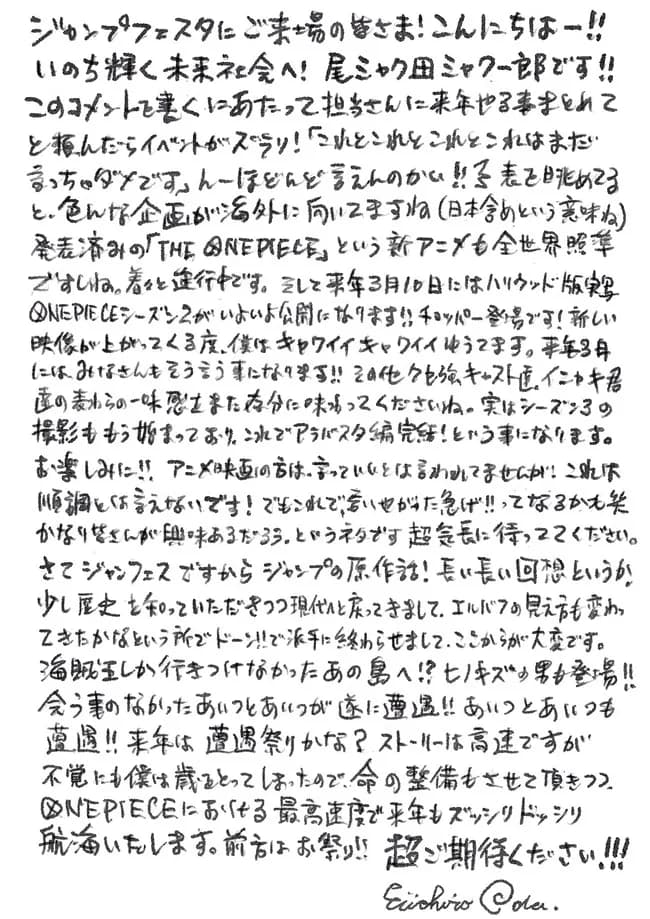 ジャンプフェスタにご来場の皆さま！こんにちはー!!
いのち輝く未来社会へ！尾ミャク田ミャク一郎です!!
このコメントを書くにあたって担当さんに来年やる事まとめて
と頼んだらイベントがズラリ！「これとこれとこれとこれはまだ
言っちゃダメです」んーほとんど言えんのかい!!予表を眺めてる
と、色んな企画が海外に向いてますね（日本含めという意味ね）
発表済みの「THE ONE PIECE」という新アニメも全世界照準
ですしね。着々と進行中です。そして来年3月10日にはハリウッド版実写
ONE PIECEシーズン2がいよいよ公開になります!!チョッパー登場です！新しい
映像が上がってくる度、僕はキャワイイキャワイイゆうてます。来年3月
には、みなさんもそう言う事になります!!その他クセ強キャスト達、イニャキ君
達の麦わらの一味 また存分に味わってくださいね。実はシーズン3の
撮影ももう始まっており、これでアラバスタ編完結！という事になります。
お楽しみに!!アニメ映画の方は、言っていいとは言われてませんが！これは
順調とは言えないです！でもこれで、言いやがった急げ!!ってなるかも笑
かなり皆さんが興味あるだろう、というネタです 超気長に待っててください。
さてジャンフェスですからジャンプの原作話！長い長い回想というか、
少し歴史を知っていただきつつ現代へと戻ってきまして、エルバフの見え方も変わっ
てきたかなという所でドーン!!で派手に終わらせまして、ここからが大変です。
海賊王しか行きつけなかったあの島へ!?ヒノキズの男も登場!!
会う事のなかったあいつとあいつが遂に遭遇!!あいつとあいつも
遭遇!!来年は遭遇祭りかな？ストーリーは高速ですが
不覚にも僕は歳をとってしまったので、命の整備もさせて頂きつつ、
ONE PIECEにおける最高速度で来年もズッシリドッシリ
航海いたします。前方はお祭り!!超ご期待ください!!!
Eiichiro Oda.